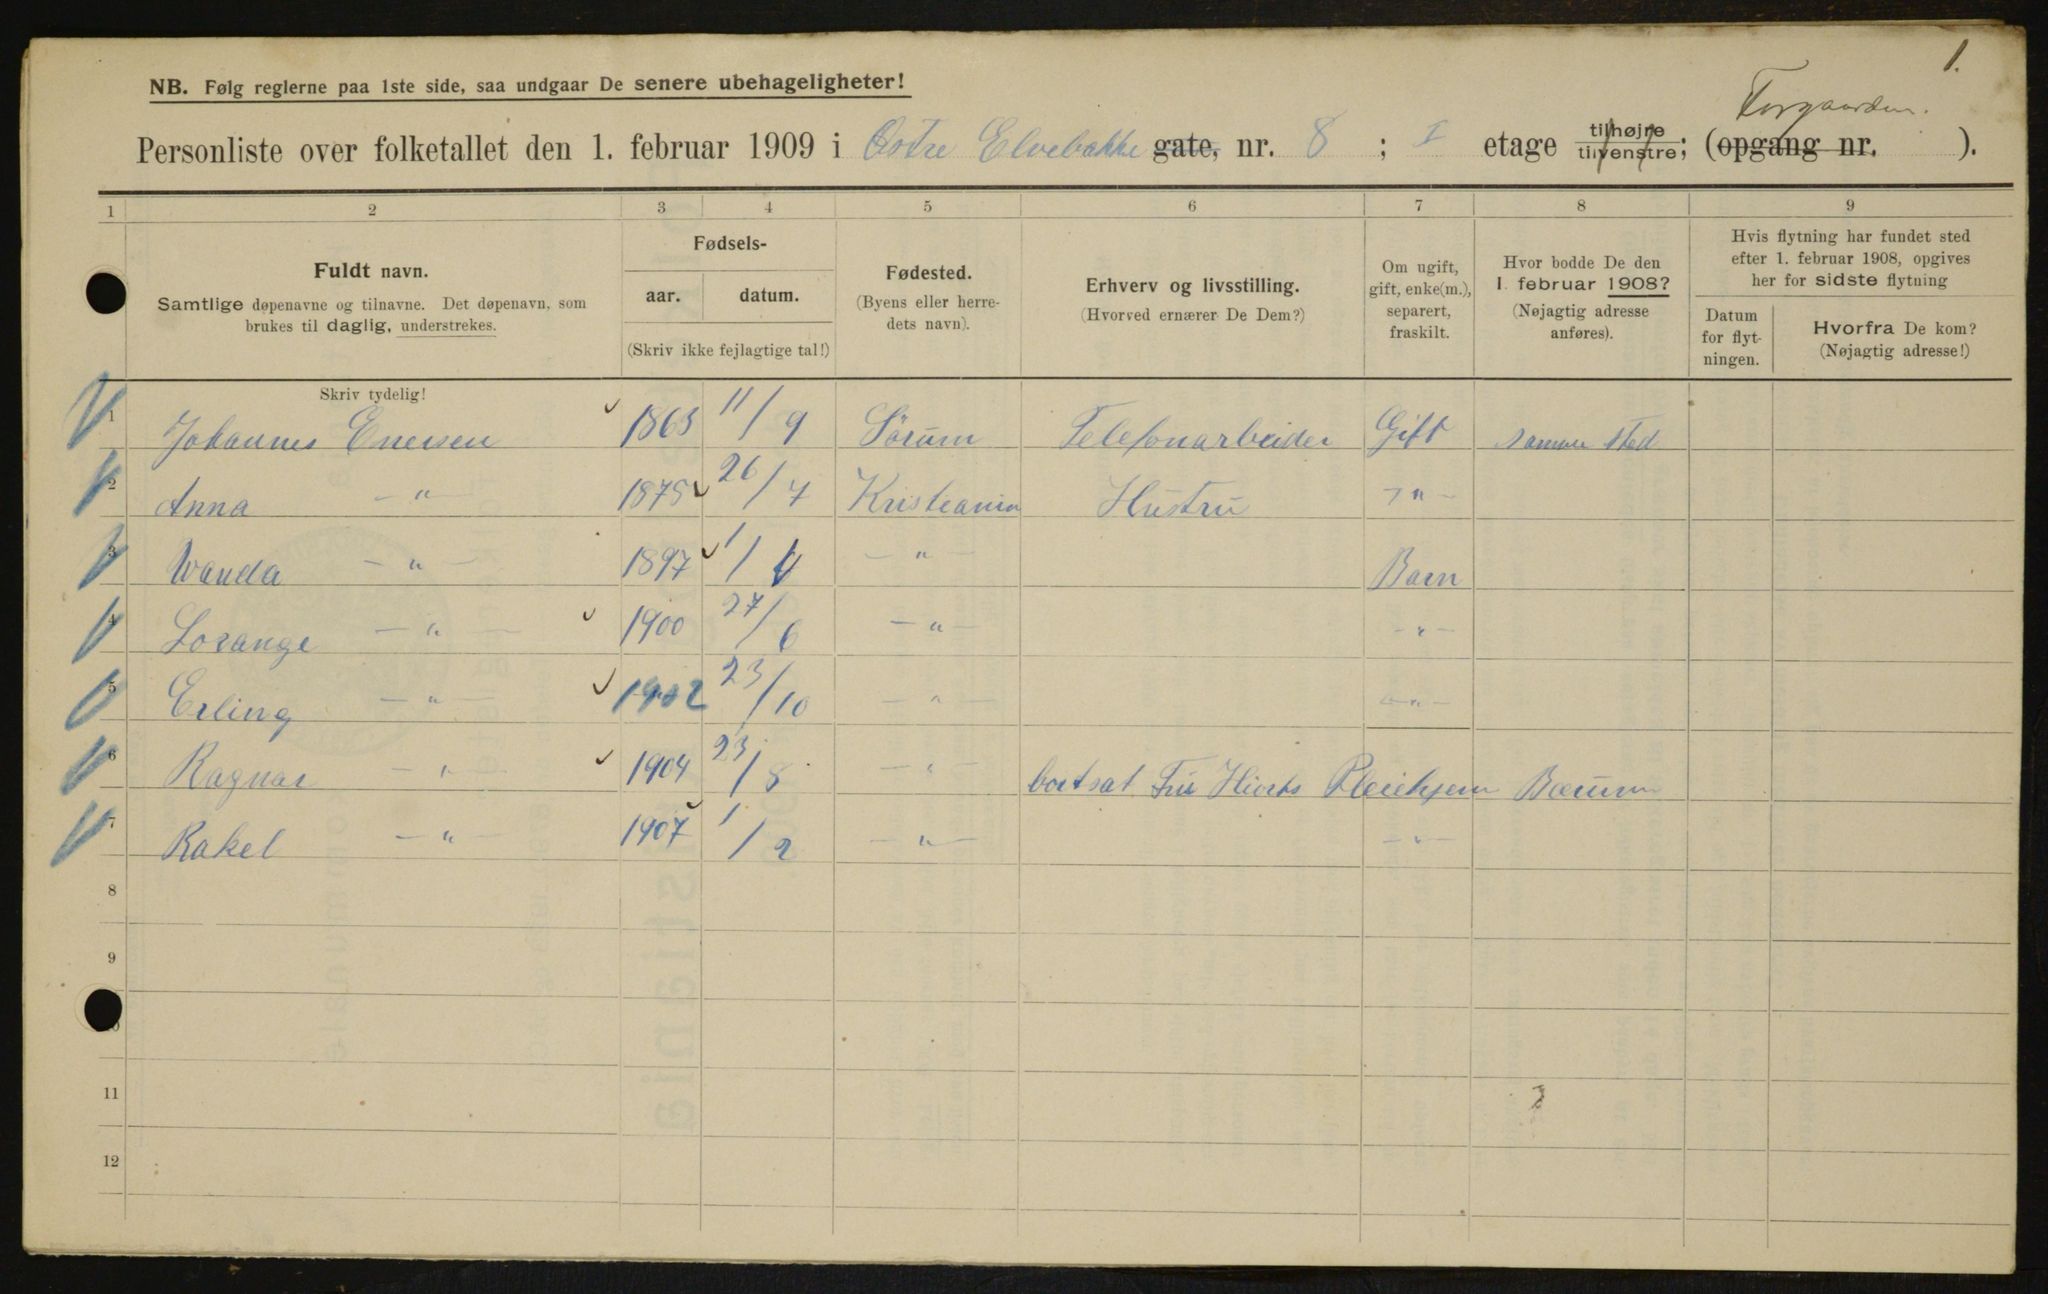 1.
NB. Følg reglerne paa 1ste side, saa undgaar De senere ubehageligheter!
Forgaarden.
Personliste over folketallet den 1. februar 1909 i Østre Elvebakke gate, nr. 8 ; I etage tilhøjre tilvenstre; (opgang nr. ).
1 2 3 4 5 6 7 8 9
Fuldt navn.
Samtlige døpenavne og tilnavne. Det døpenavn, som
brukes til daglig, understrekes.
Fødsels-
aar. datum.
(Skriv ikke fejlagtige tal!)
Fødested.
(Byens eller herre-
dets navn).
Erhverv og livsstilling.
(Hvorved ernærer De Dem?)
Om ugift,
gift, enke(m.),
separert,
fraskilt.
Hvor bodde De den
1. februar 1908?
(Nøjagtig adresse
anføres).
Hvis flytning har fundet sted
efter 1. februar 1908, opgives
her for sidste flytning
Datum
for flyt-
ningen.
Hvorfra De kom?
(Nøjagtig adresse!)
Skriv tydelig!
1 Johannes Enersen 1863 11/9 Sörum Telefonarbeider Gift samme sted
2 Anna -"- 1875 26/7 Kristiania Hustru -"-
3 Wanda -"- 1897 1/4 -"- Barn
4 Lorange -"- 1900 27/6 -"- -"-
5 Erling -"- 1902 23/10 -"- -"-
6 Ragnar -"- 1904 23/8 -"- bortsat Fru Hiorts Pleiehjem Bærum
7 Rakel -"- 1907 1/2 -"- -"-
8
9
10
11
12